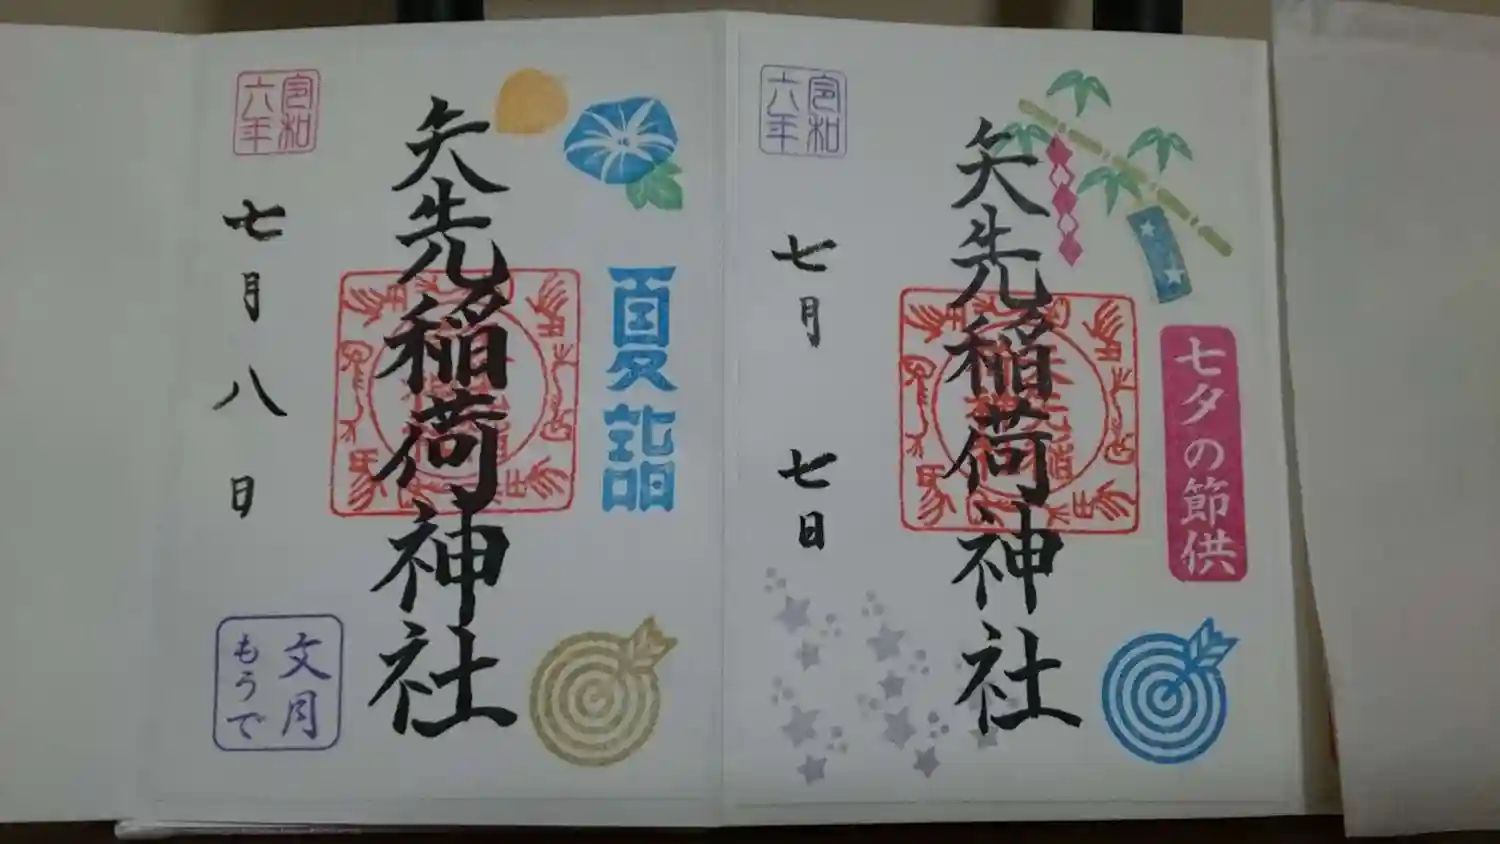 七夕の節供
矢先稲荷神社
令和
六年
七月七日
夏詣
矢先稲荷神社
令和
六年
七月八日
文月
もうで